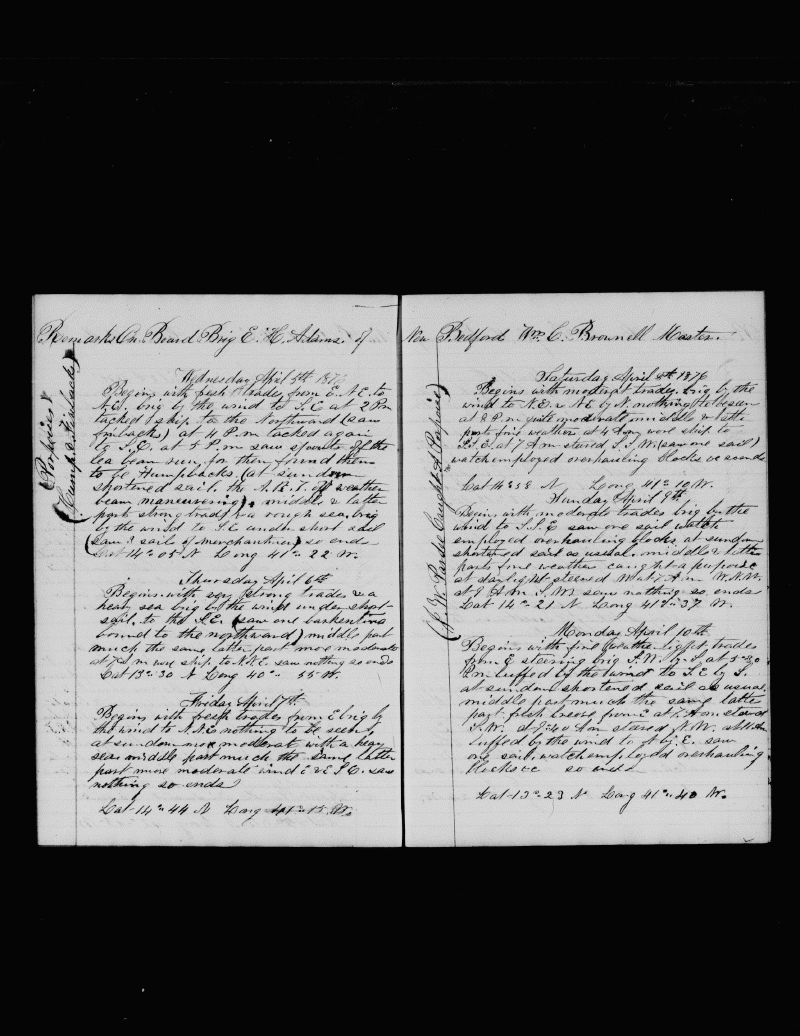 Remarks On Board Brig E. H. Adams. of New Bedford Wm. C. Brownell Master.
(Porpoises &
(Hump & Finbacks)
Wednesday April 5th 1876
Begins with fresh trades from E.N.E. to
N.E. brig by the wind to S.E at 2 P.m
tacked ship to the Northward (saw
finbacks) at 4 P.m tacked again
to S.E. at 5 P.m saw spouts off the
lea beam run for them found them
to be Humpbacks, at sundown
shortened sail. the A.R.T. off weather
beam maneuvering) middle & latter
part strong trades & a rough sea. brig
by the wind to S.E under short sail
(saw 3 sails of merchantmen) so ends
Lat 14° 05 N Long 40° 22 W.
Thursday April 6th
Begins with very strong trades & a
heavy sea brig by the wind under short
sail. to the S.E. (saw one barkentine
bound to the northward) middle part
much the same, latter part more moderate
at 7 a.m wore ship to N.N.E. saw nothing so ends
Lat 13°-30 N Long 40° 55 W.
Friday April 7th
Begins with fresh trades from E brig by
the wind to N.N.E nothing to be seen,
at sundown more moderate with a heavy
sea. middle part much the same latter
part more moderate wind E & E.S.E. saw
nothing so ends
Lat 14° 44 N Long 41° 15 W.
(J. W. Pardie Caught A Porpoise)
Saturday April 8th 1876
Begins with moderate trades, brig by the
wind to N.E. & N E by N. nothing to be seen
at 8 P.m quite moderate, middle & latter
part fine weather at 4 Am wore ship to
S.S.E. at 7 Am steered S.S.W. (saw one sail)
watch employed overhauling blocks so ends
Lat 14°58 N Long 41° 10 W.
Sunday April 9th
Begins with moderate trades brig by the
wind to S.S.E saw one sail watch
employed overhauling blocks, at sundown
shortened sail as usual. middle & latter
parts fine weather caught a purpoise
at daylight steered W. at 7 A.m W.N.W.
at 9 A.m S.W. saw nothing so ends
Lat 14° 21 N Long 41° 37 W.
Monday April 10th
Begins with fine weather light trades
from E steering brig S.W. by S. at 5-30
P.m luffed by the wind to S.E by S.
at sundown shortened sail as usual,
middle part much the same latter
part fresh breeze from E at 7 A.m steered
S.W. at 9:40 A.m steered N.W. at 11 Am
luffed by the wind to N by E. saw
one sail, watch employed overhauling
blocks &c so ends
Lat 13°-23 N Long 41° 40 W.